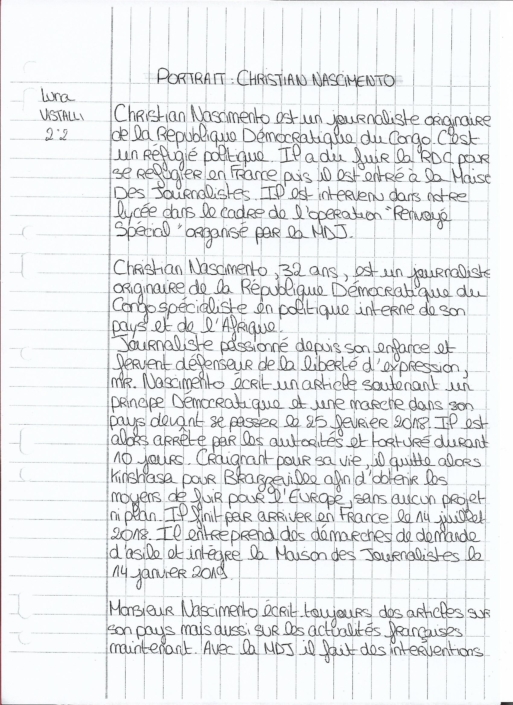 PORTRAIT : CHRISTIAN NASCIMENTO
Luna
VISTALLI
2°2
Christian Nascimento est un journaliste originaire
de la République Démocratique du Congo. C'est
un réfugié politique. Il a du fuir la RDC pour
se réfugier en France puis il est entré à la Maiso
Des Journalistes. Il est intervenu dans notre
lycée dans le cadre de l'operation "Renvoyé
Spécial" organisé par la MDJ.
Christian Nascimento, 32 ans, est un journaliste
originaire de la République Démocratique du
Congo spécialiste en politique interne de son
pays et de l'Afrique.
Journaliste passionné depuis son enfance et
fervent défenseur de la liberté d'expression,
MR. Nascimento écrit un article soutenant un
principe Démocratique et une marche dans son
pays devant se passer le 25 fevrier 2018. Il est
alors arrêté par les autorités et torturé durant
10 jours. Craignant pour sa vie, il quitte alors
Kinshasa pour Brazzeville afin d'obtenir les
moyens de fuir pour l'Europe, sans aucun projet
ni plan. Il finit par arriver en France le 14 juillet
2018. Il entreprend des démarches de demande
d'asile et intègre la Maison des Journalistes le
14 janvier 2019.
Monsieur Nascimento écrit toujours des articles sur
son pays mais aussi sur les actualités françaises
maintenant. Avec la MDJ il fait des interventions